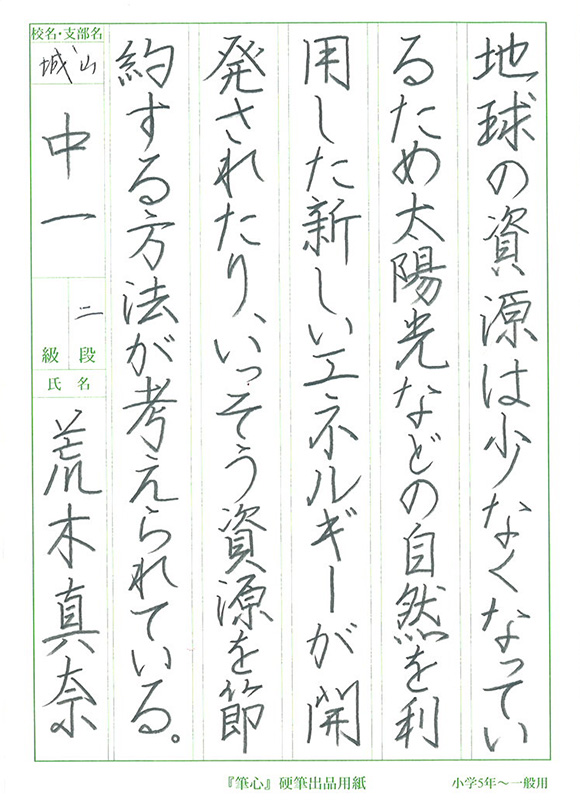 地球の資源は少なくなってい
るため太陽光などの自然を利
用した新しいエネルギーが開
発されたり、いっそう資源を節
約する方法が考えられている。
校名・支部名
城山
中一
二
級 段
氏 名
荒木真奈
『筆心』硬筆出品用紙
小学5年〜一般用